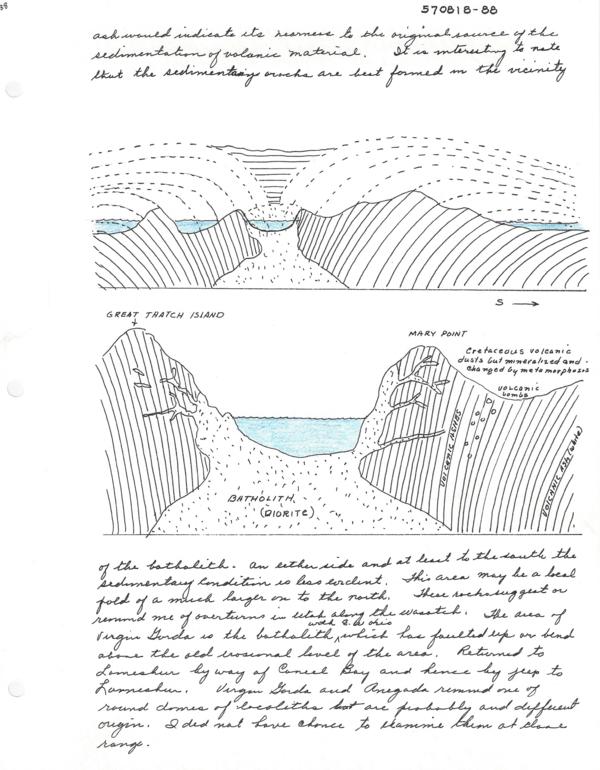 38
570818-88
ash would indicate its nearness to the original source of the
sedimentation of volcanic material. It is interesting to note
that the sedimentary rocks are best formed in the vicinity
S →
GREAT THATCH ISLAND
MARY POINT
Cretaceous volcanic
dusts but mineralized and
changed by metamorphosis
VOLCANIC
bombs
VOLCANIC ASHES
VOLCANIC ASH (white)
BATHOLITH
(DIORITE)
of the batholith. On either side and at least to the south the
sedimentary condition is less evident. This area may be a local
fold of a much larger on to the north. These rocks suggest or
remind me of overturns in Utah along the Wasatch. The area of
Virgin Gorda is the batholith, which has faulted up or bend
above the old erosional level of the area. Returned to
Lameshur by way of Caneel Bay and hence by jeep to
Lameshur. Virgin Gorda and Anegada remind one of
round domes of lacoliths but are probably and different
origin. I did not have chance to examine them at close
range.